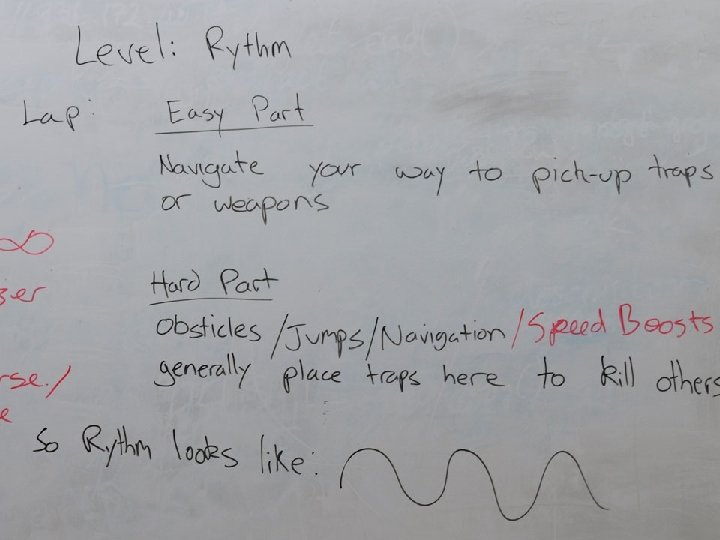 Level: Rythm
Lap: Easy Part
Navigate your way to pick-up traps
or weapons
Hard Part
Obsticles /Jumps/Navigation/Speed Boosts
generally place traps here to kill others
So Rythm looks like: